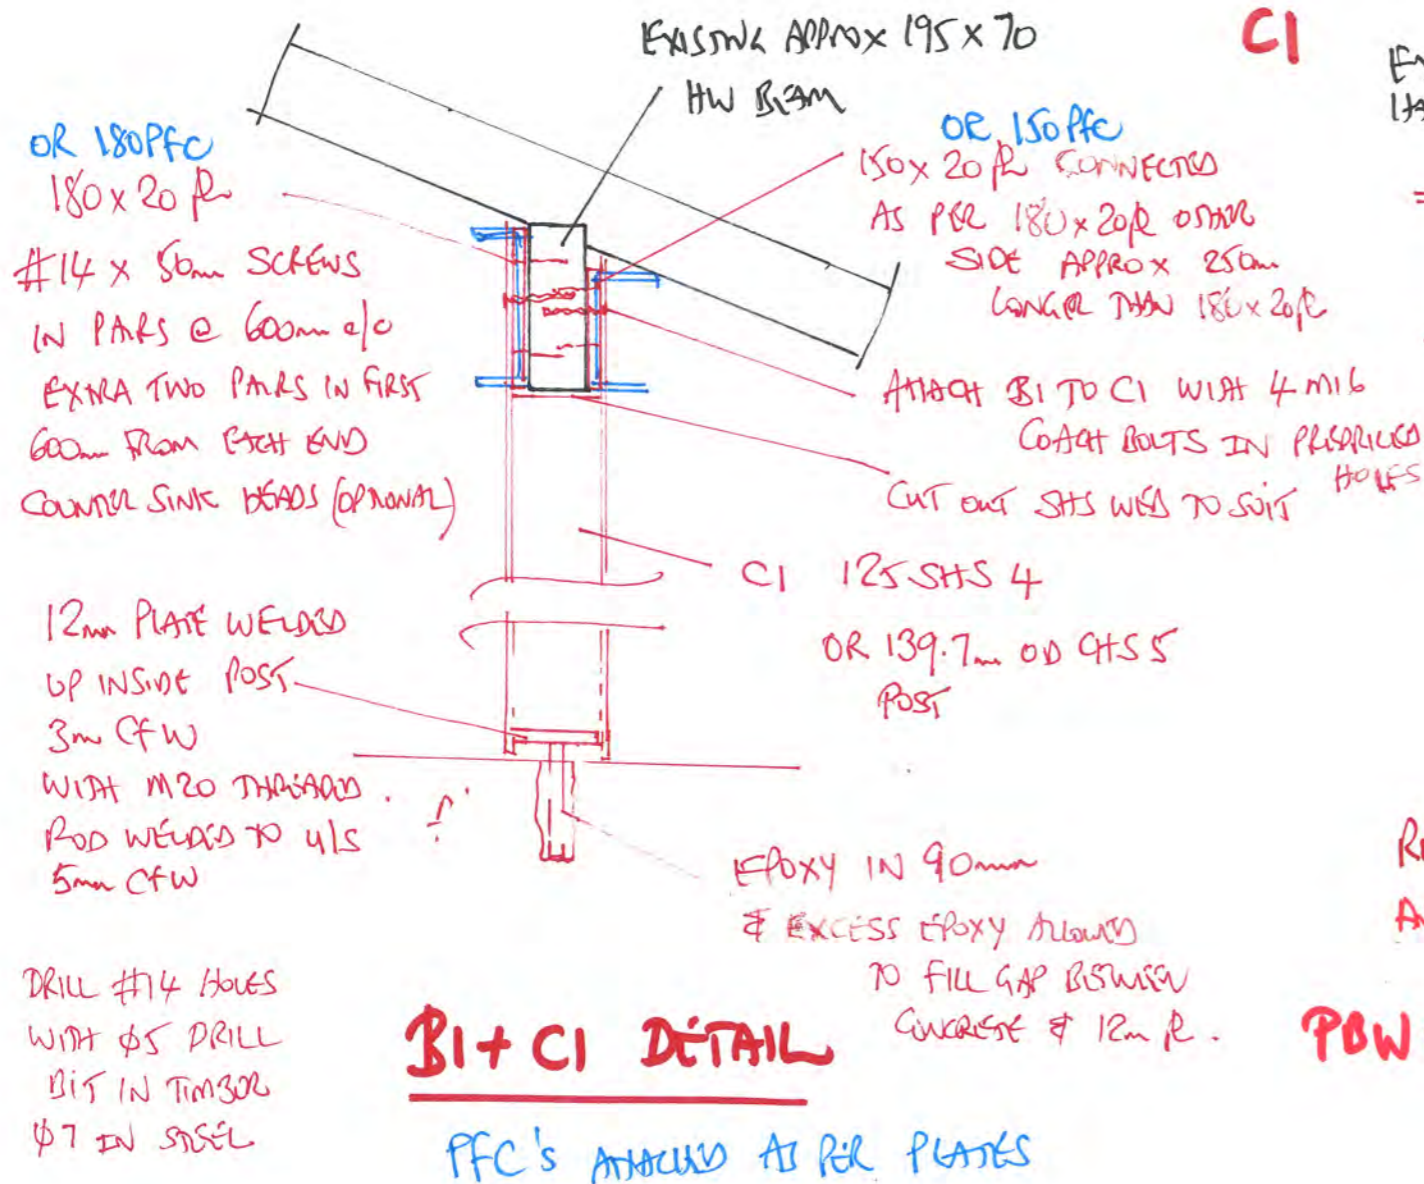 EXISTING APPROX 195 x 70
HW BEAM
C1
OR 180PFC
180 x 20 PL
#14 x 50mm SCREWS
IN PAIRS @ 600mm c/c
EXTRA TWO PAIRS IN FIRST
600mm FROM EACH END
COUNTER SINK HEADS (OPTIONAL)
OR 150PFC
150 x 20 PL CONNECTED
AS PER 180 x 20PL OTHER
SIDE APPROX 250mm
LONGER THAN 180 x 20PL
ATTACH B1 TO C1 WITH 4 M16
COACH BOLTS IN PREDRILLED
HOLES
CUT OUT SHS WEB TO SUIT
C1 125 SHS 4
OR 139.7mm OD CHS 5
POST
12mm PLATE WELDED
UP INSIDE POST
3mm CFW
WITH M20 THREADED
ROD WELDED TO U/S
5mm CFW
EPOXY IN 90mm
& EXCESS EPOXY ALLOWED
TO FILL GAP BETWEEN
CONCRETE & 12mm PL.
DRILL #14 HOLES
WITH φ5 DRILL
BIT IN TIMBER
φ7 IN STEEL
B1 + C1 DETAIL
PBW
PFC's ATTACHED AS PER PLATES